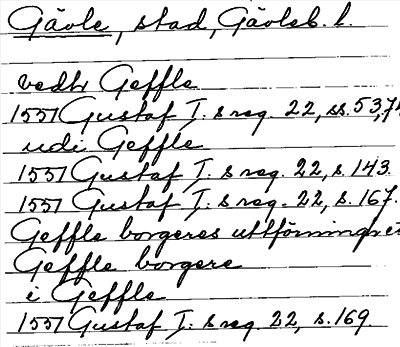 Gävle, stad, Gävleb. l.
vedh Geffle
1551 Gustaf I:s reg. 22, ss. 53,
udi Geffle
1551 Gustaf I:s reg. 22, s. 143.
1551 Gustaf I:s reg. 22, s. 167.
Geffle borgeres utförning
Geffle borgere
i Geffle
1551 Gustaf I:s reg. 22, s. 169.